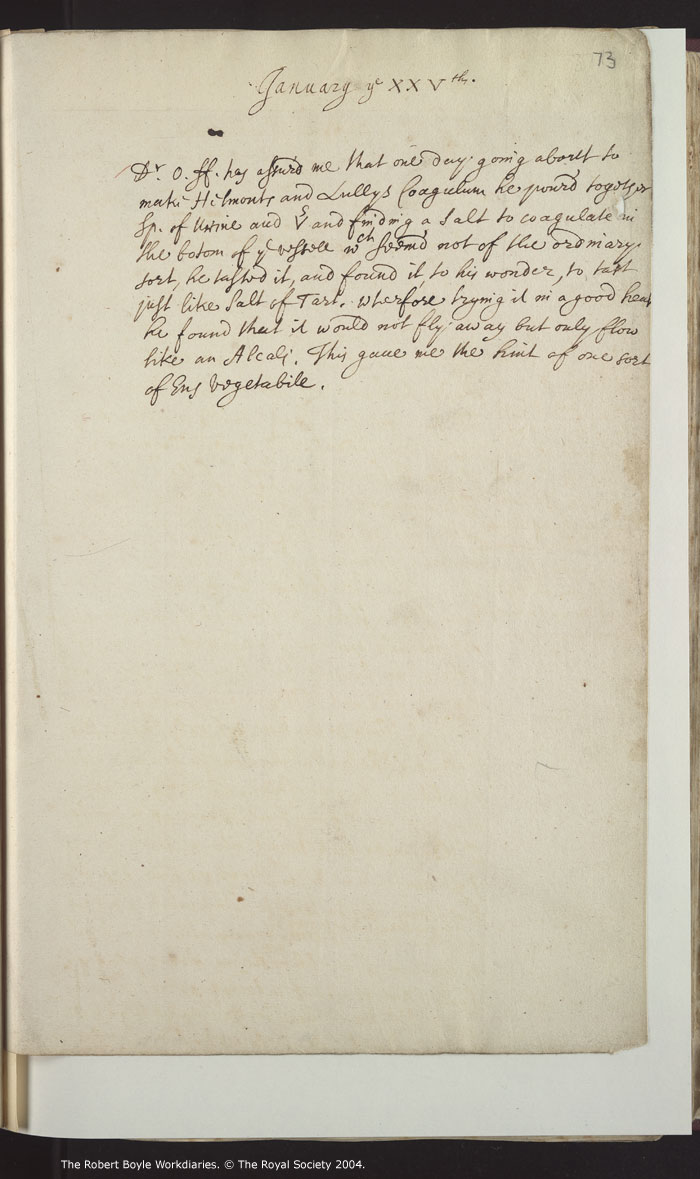 73
January yᵉ XXVᵗʰ.
Dʳ. O. ff. has assur'd me that one day going about to
make Helmonts and Lullys Coagulum he pour'd together
Sp. of Urine and and finding a Salt to coagulate in
the botom of yᵉ vessell wᶜʰ seem'd not of the ordinary
sort, he tasted it, and found it, to his wonder, to tast
just like Salt of Tart. wherfore trying it in a good heat
he found that it would not fly away but only flow
like an Alcali. This gave me the hint of one sort
of Ens Vegetabile.
The Robert Boyle Workdiaries. © The Royal Society 2004.